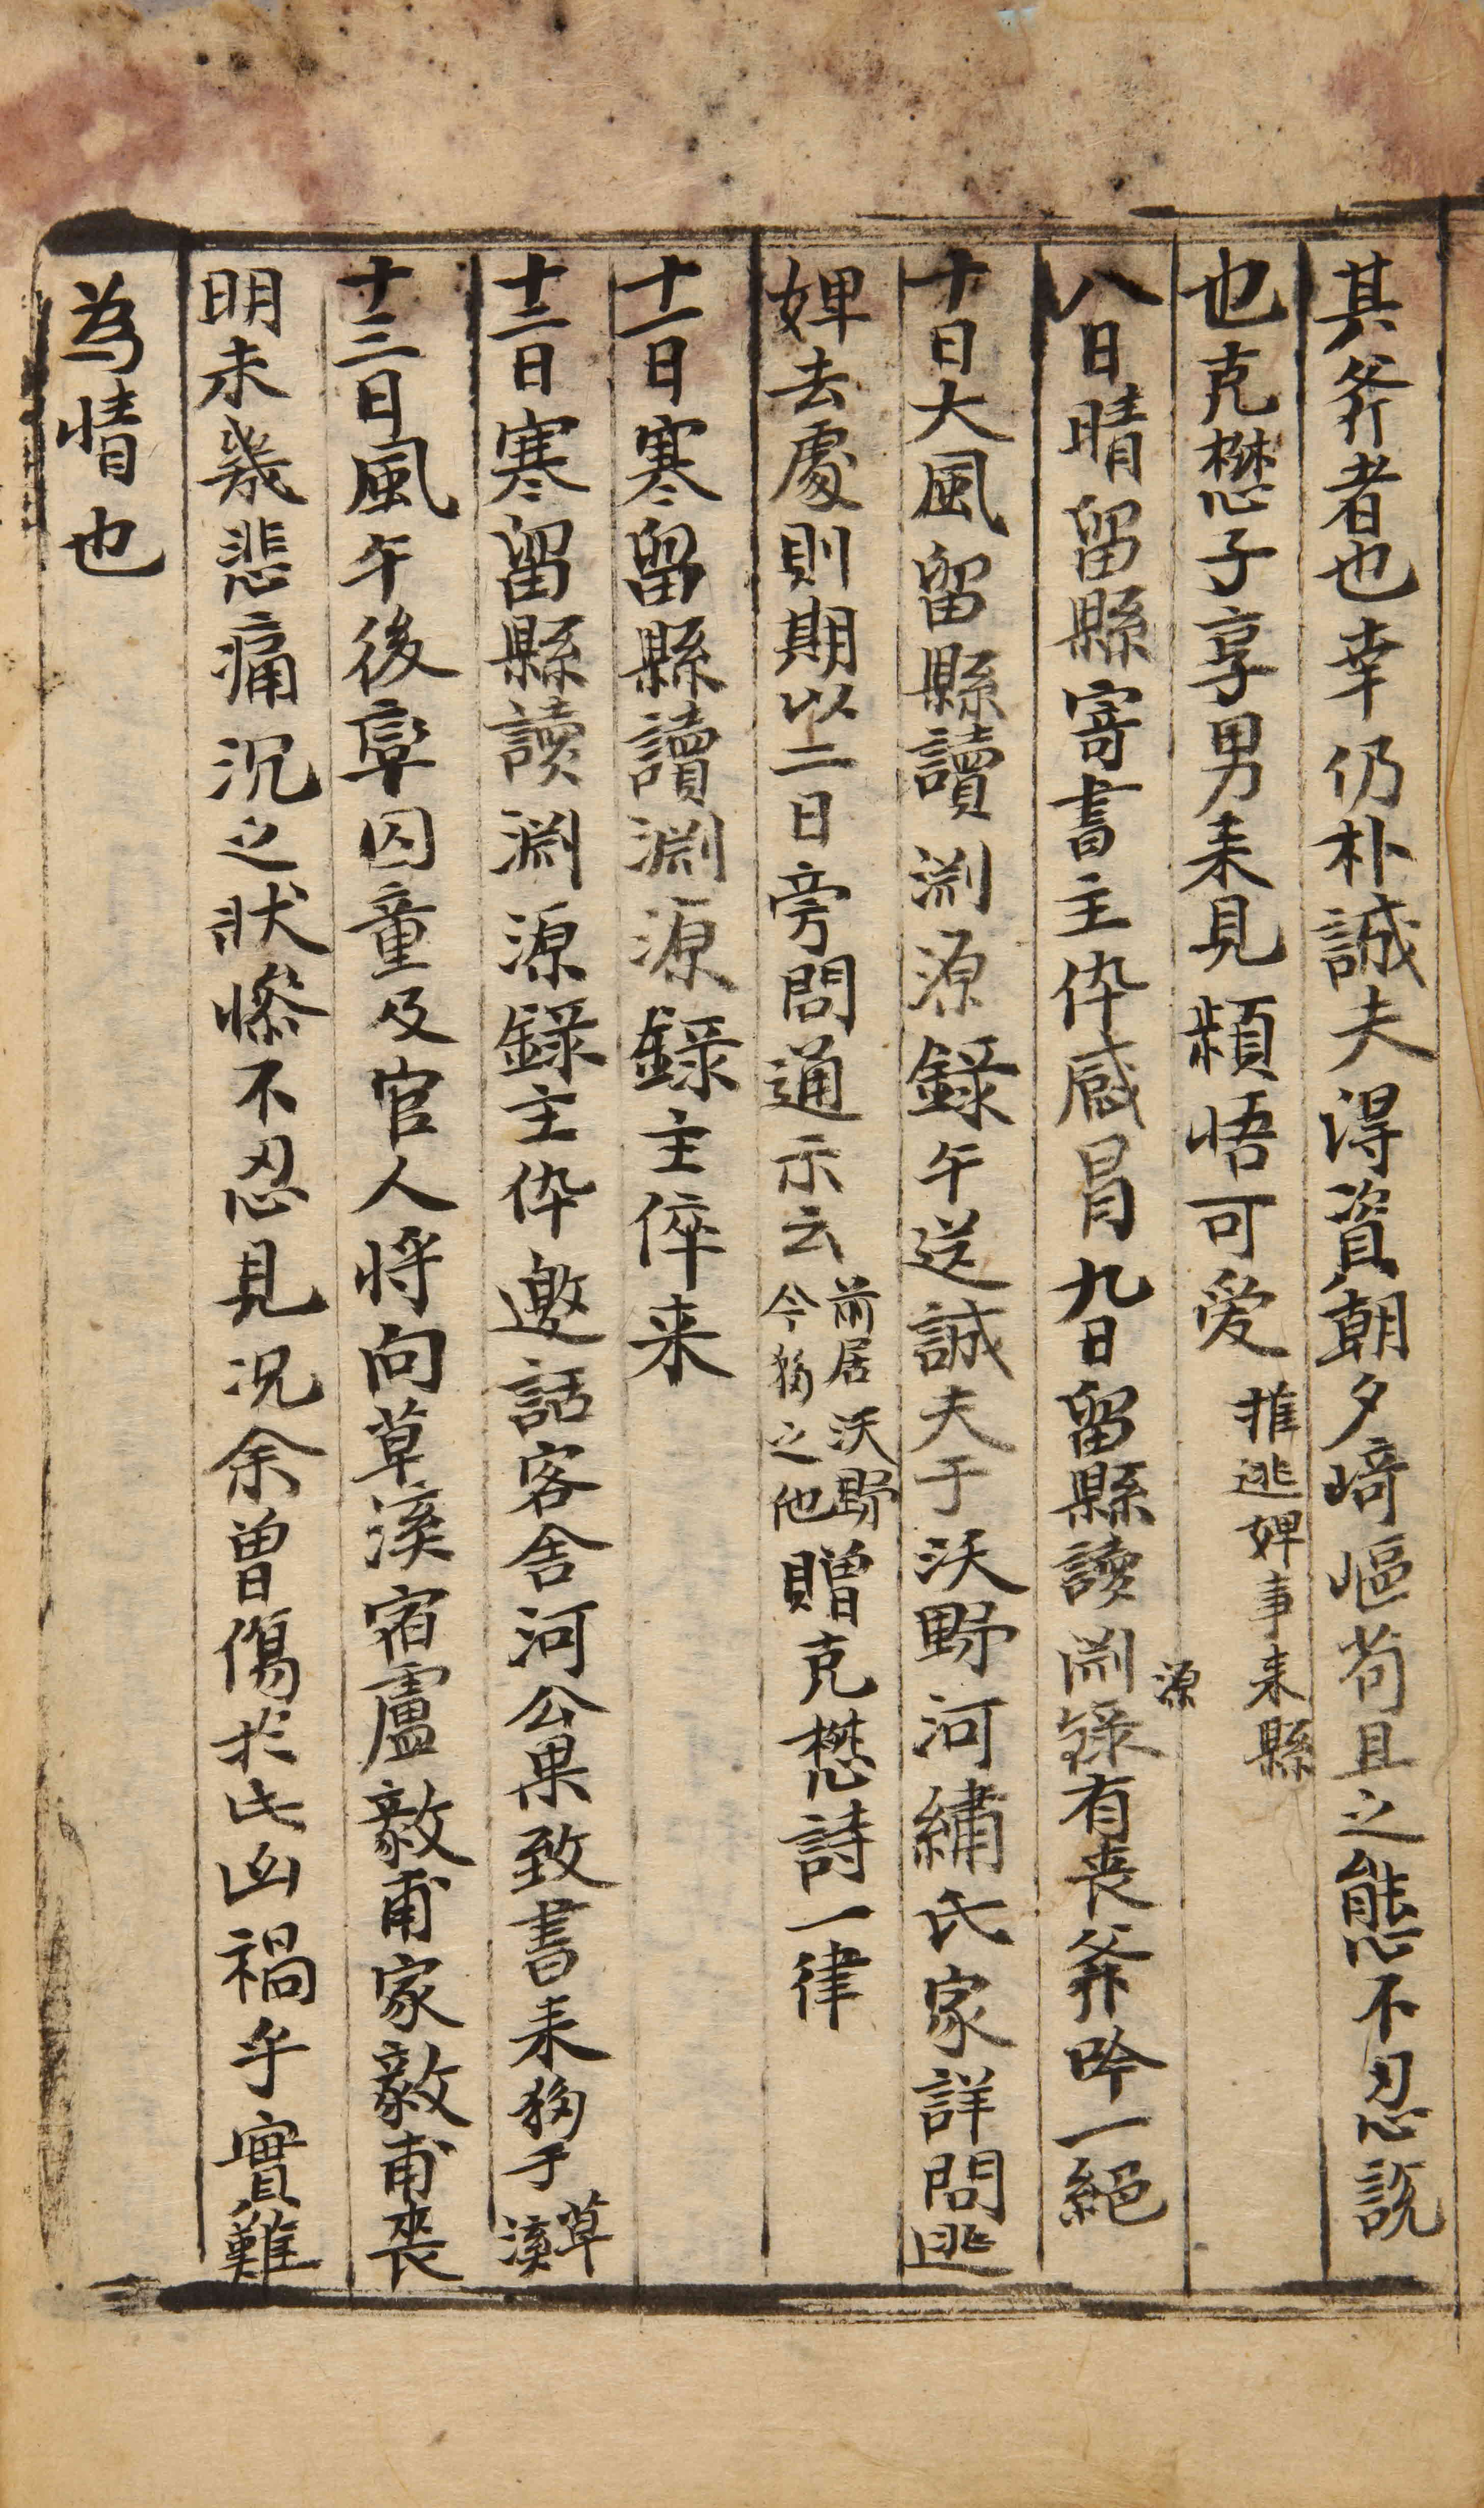 其斧者也幸仍朴誠夫得資朝夕崎嶇苟且之態不忍說
也克懋子享男来見穎悟可愛推逃婢事来縣
八日晴留縣寄書主倅感冒九日留縣讀淵源錄有喪斧吟一絕
十日大風留縣讀淵源錄午送誠夫于沃野河繡氏家詳問逃
婢去處則期以二日旁問通示云前居沃野今移之他贈克懋詩一律
十一日寒留縣讀淵源錄主倅来
十二日寒留縣讀淵源錄主倅邀話客舍河公果致書来移于草溪
十三日風午後率囚童及官人將向草溪宿盧毅甫家毅甫喪
明未幾悲痛沉之狀慘不忍見况余曾傷於此凶禍乎實難
為情也